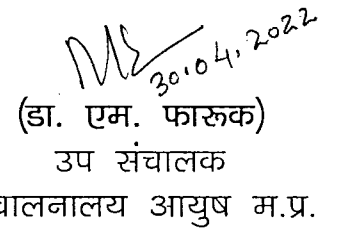 30.04.2022
(डा. एम. फारूक)
उप संचालक
चालनालय आयुष म.प्र.